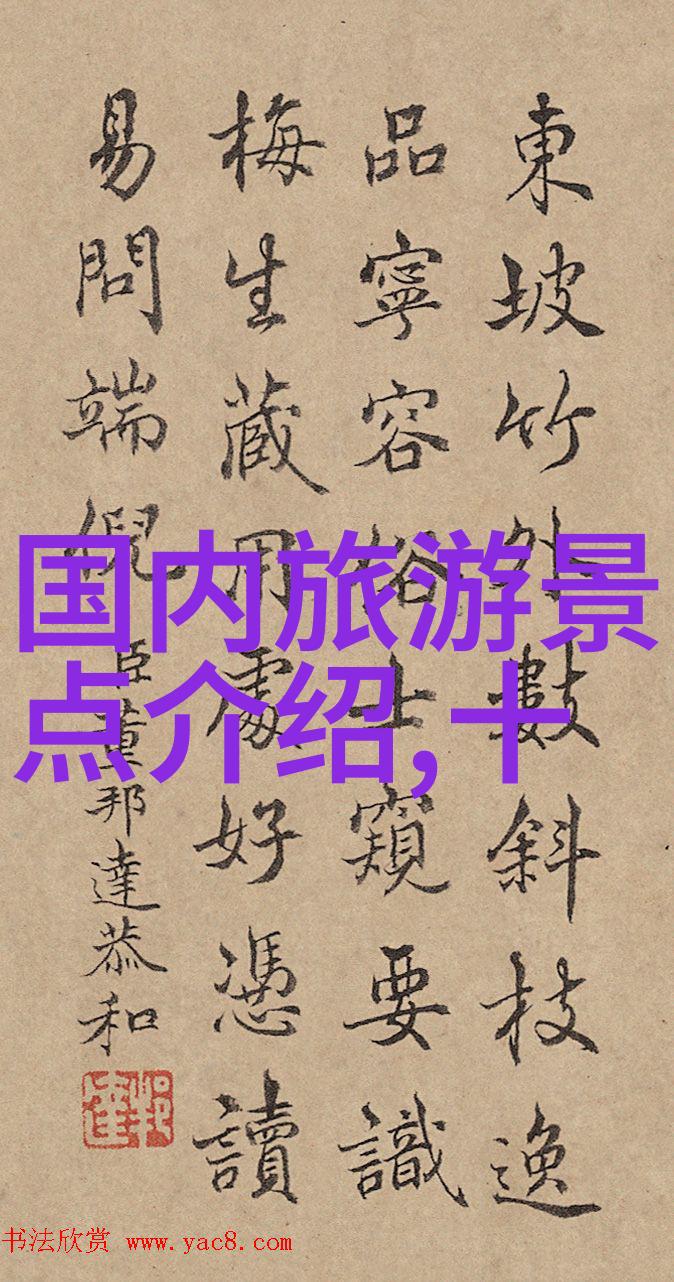 東坡竹外數斜枝逸
品寧容俗士窺要識
梅生蔵用處好憑讀
易問端倪臣董邦達恭和
国内旅游景
点介绍,十
书法欣赏 www.yac8.com